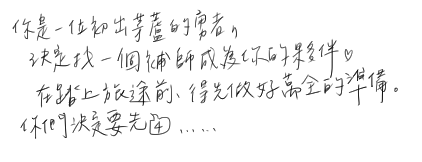 你是一位初出茅蘆的勇者，
決定找一個補師成為你的夥伴♡
在踏上旅途前、得先做好萬全的準備。
你們決定要先④……